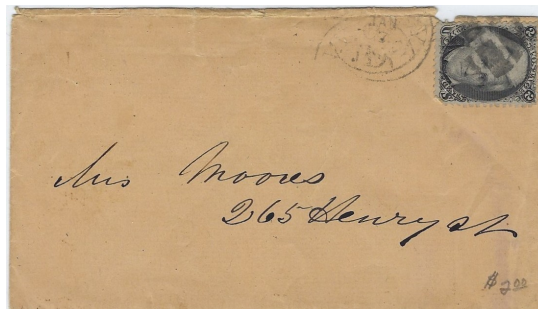 JAN
Mrs Moores
265 Henry st
$ 2.00